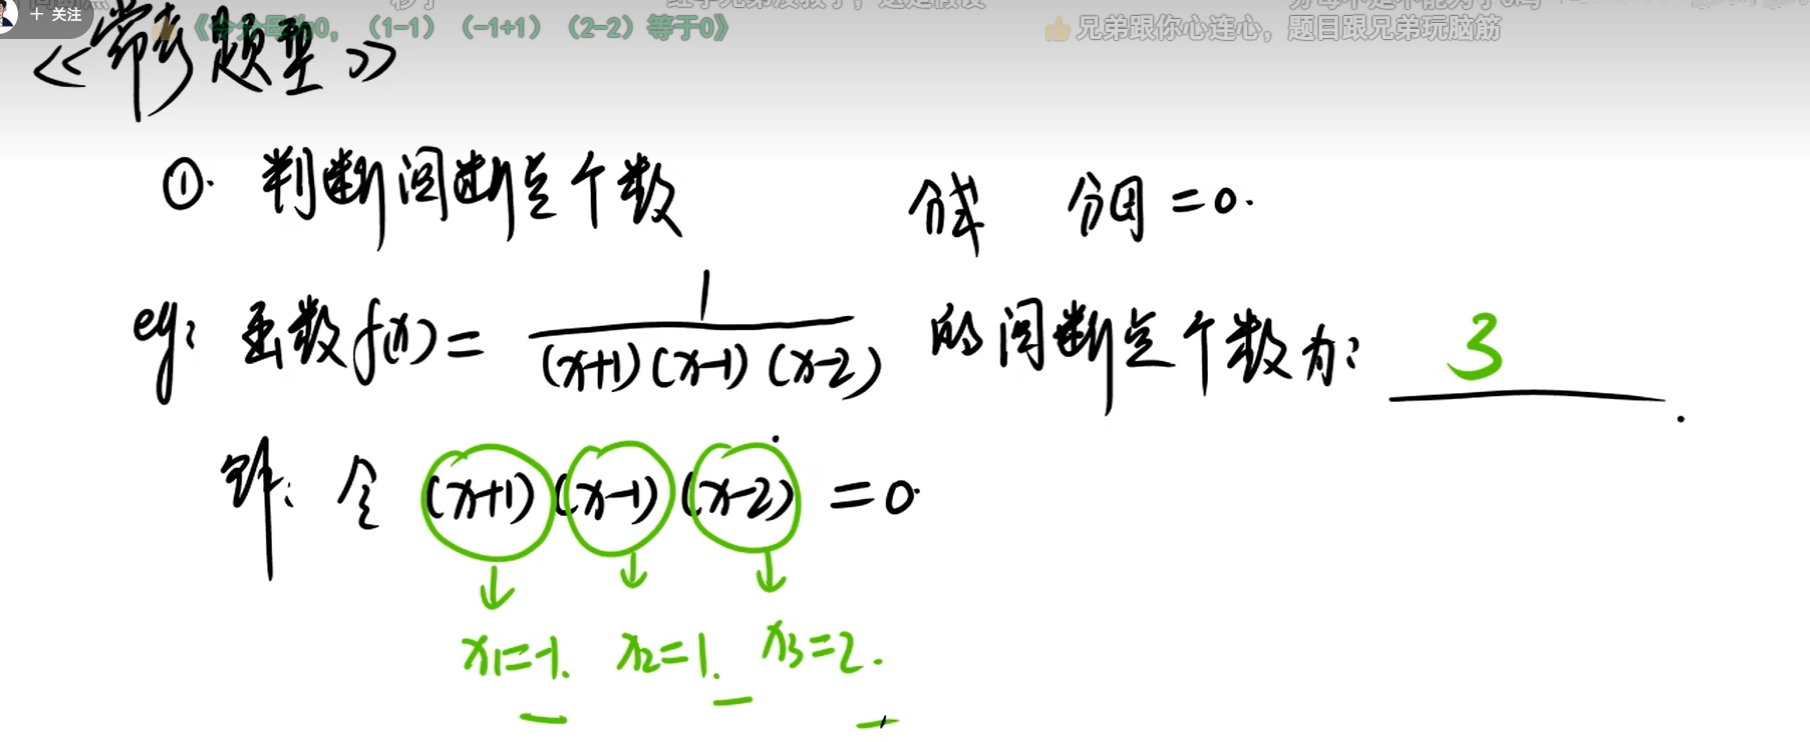 + 关注
《令分母为0，（1-1）（-1+1）（2-2）等于0》
兄弟跟你心连心，题目跟兄弟玩脑筋
<<常考题型>>
①. 判断间断点个数 分式 分母=0.
eg: 函数f(x)= 1/(x+1)(x-1)(x-2) 的间断点个数为: 3.
解: 令 (x+1)(x-1)(x-2) =0.
↓ ↓ ↓
x1=-1. x2=1. x3=2.